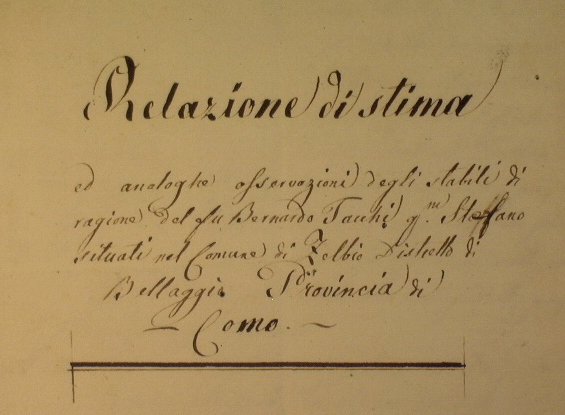 Relazione di stima
ed analoghe osservazioni degli stabili di
ragione del fu Bernardo Tacchi q.m Steffano
situati nel Comune di Zelbio Distretto di
Bellaggio Provincia di
Como.